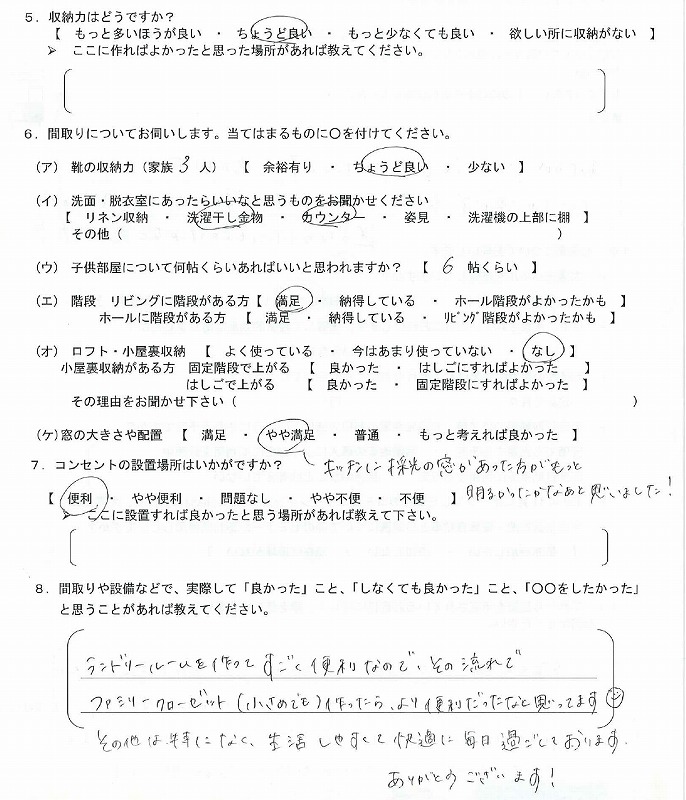 ５．収納力はどうですか？
【　もっと多いほうが良い　・　ちょうど良い　・　もっと少なくても良い　・　欲しい所に収納がない　】
➢　ここに作ればよかったと思った場所があれば教えてください。
６．間取りについてお伺いします。当てはまるものに〇を付けてください。
（ア）　靴の収納力（家族 3 人）　【　余裕有り　・　ちょうど良い　・　少ない　】
（イ）　洗面・脱衣室にあったらいいなと思うものをお聞かせください
【　リネン収納　・　洗濯干し金物　・　カウンター　・　姿見　・　洗濯機の上部に棚　】
その他（　　　　　　　　　　）
（ウ）　子供部屋について何帖くらいあればいいと思われますか？　【　6　帖くらい　】
（エ）　階段　リビングに階段がある方【　満足　・　納得している　・　ホール階段がよかったかも　】
ホールに階段がある方　【　満足　・　納得している　・　ﾘﾋﾞﾝｸﾞ階段がよかったかも　】
（オ）　ロフト・小屋裏収納　【　よく使っている　・　今はあまり使っていない　・　なし　】
小屋裏収納がある方　固定階段で上がる　【　良かった　・　はしごにすればよかった　】
はしごで上がる　【　良かった　・　固定階段にすればよかった　】
その理由をお聞かせ下さい（　　　　　　　　　　）
（ケ）窓の大きさや配置　【　満足　・　やや満足　・　普通　・　もっと考えれば良かった　】
７．コンセントの設置場所はいかがですか？
キッチンに採光の窓があった方がもっと
明るかったかなあと思いました！
【　便利　・　やや便利　・　問題なし　・　やや不便　・　不便　】
➢　ここに設置すれば良かったと思う場所があれば教えて下さい。
８．間取りや設備などで、実際して「良かった」こと、「しなくても良かった」こと、「〇〇をしたかった」
と思うことがあれば教えてください。
ランドリールームを作ってすごく便利なので、その流れで
ファミリークローゼット（小さめでも）作ったら、より便利だったなと思ってます
その他は特になく、生活しやすくて快適に毎日過ごしております。
ありがとうございます！